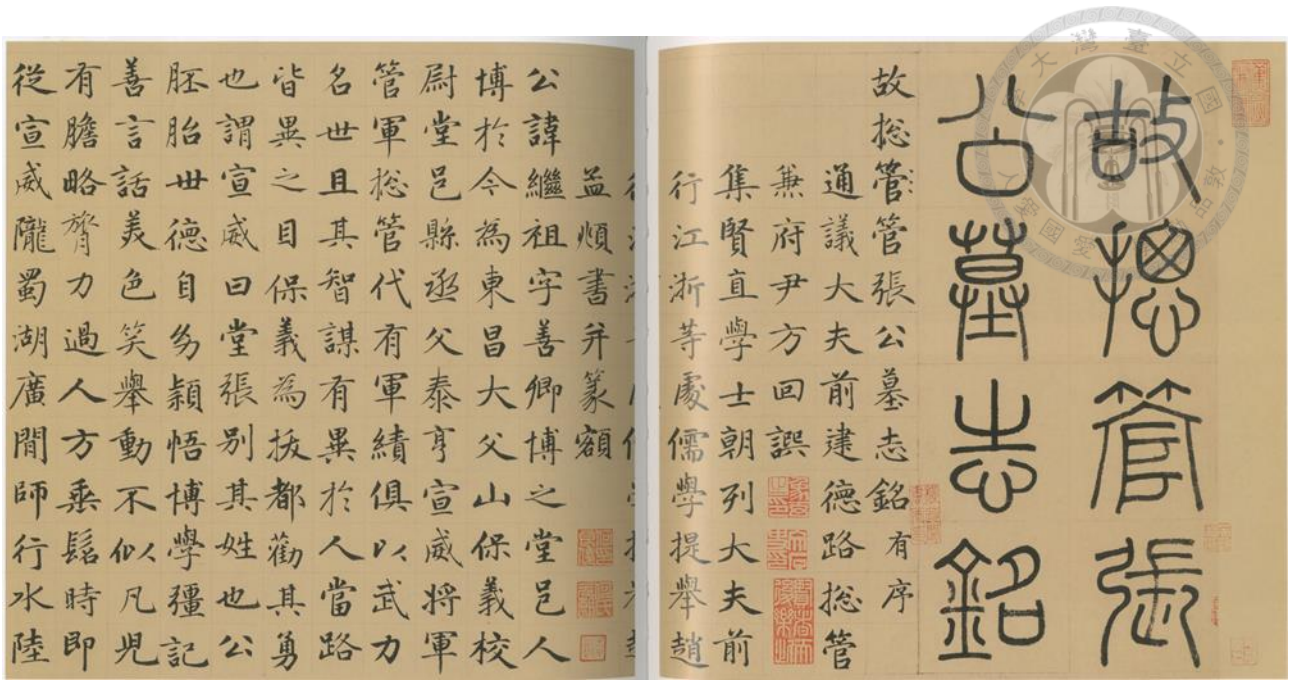 故揔管張
公墓志銘
故揔管管張公墓志銘有序
通議大夫前建德路揔管
兼府尹方回譔
集賢直學士朝列大夫前
行江浙等處儒學提舉趙
孟頫書并篆額
公諱繼祖字善卿博之堂邑人
博於今為東昌大父山保義校
尉堂邑縣丞父泰亨宣威將軍
管軍揔管代有軍績俱以武力
名世且其智謀有異於人當路
皆異之目保義為拔都勸其勇
也謂宣威曰堂張別其姓也公
胚胎世德自幼穎悟博學彊記
善言話美色笑舉動不似凡兒
有膽略膂力過人方垂髫時即
從宣威隴蜀湖廣間師行水陸